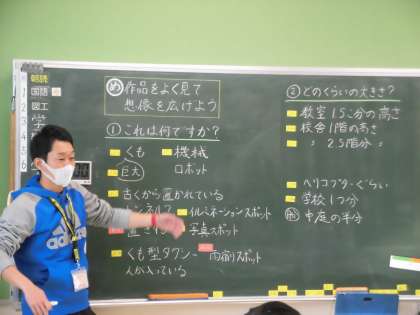 朝読
国語
図工
学
1
2
3
4
5
6
め 作品をよく見て
想像を広げよう
① これは何ですか?
くも
機械
巨大
ロボット
古くから置かれている
イルミネーションスポット
置され
写真スポット
くも型タワー
雨宿りスポット
人が入っている
② どのくらいの大きさ?
教室1.5こ分の高さ
校舎1階の高さ
〃 2.5階分 〃
ヘリコプターぐらい
学校1つ分
中庭の半分
adidas